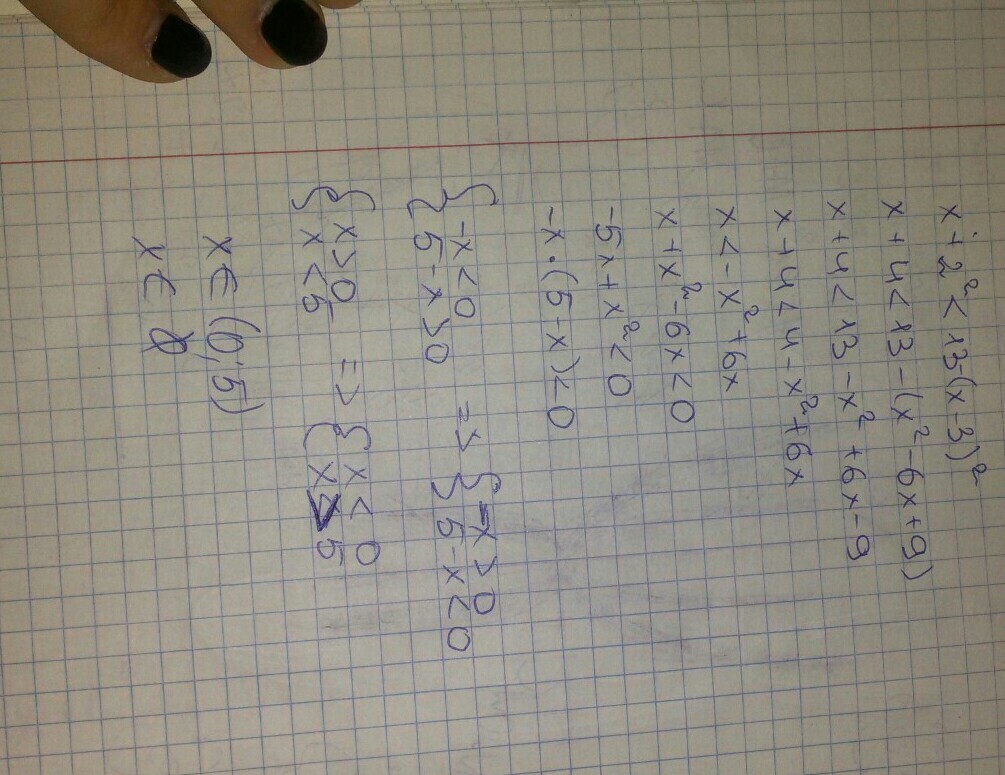 x + 2² < 13-(x-3)²
x + 4 < 13 - (x² - 6x + 9)
x + 4 < 13 - x² + 6x - 9
x + 4 < 4 - x² + 6x
x < - x² + 6x
x + x² - 6x < 0
-5x + x² < 0
-x · (5 - x) < 0
{ -x < 0 => { -x > 0
{ 5 - x > 0 { 5 - x < 0
{ x > 0 => { x < 0
{ x < 5 { x > 5
x ∈ (0; 5)
x ∈ ∅